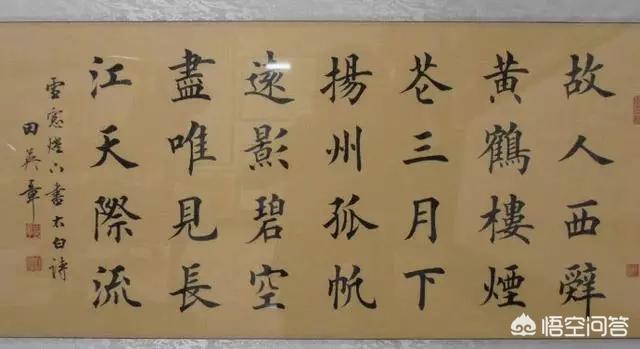 故人西辤
黄鶴樓煙
花三月下
揚州孤帆
遠影碧空
盡唯見長
江天際流
雪窓燈下書太白詩
田英章
悟空问答